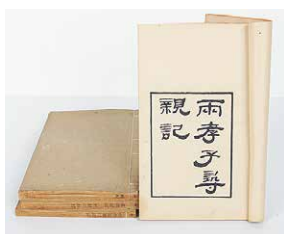 兩孝子尋
親記